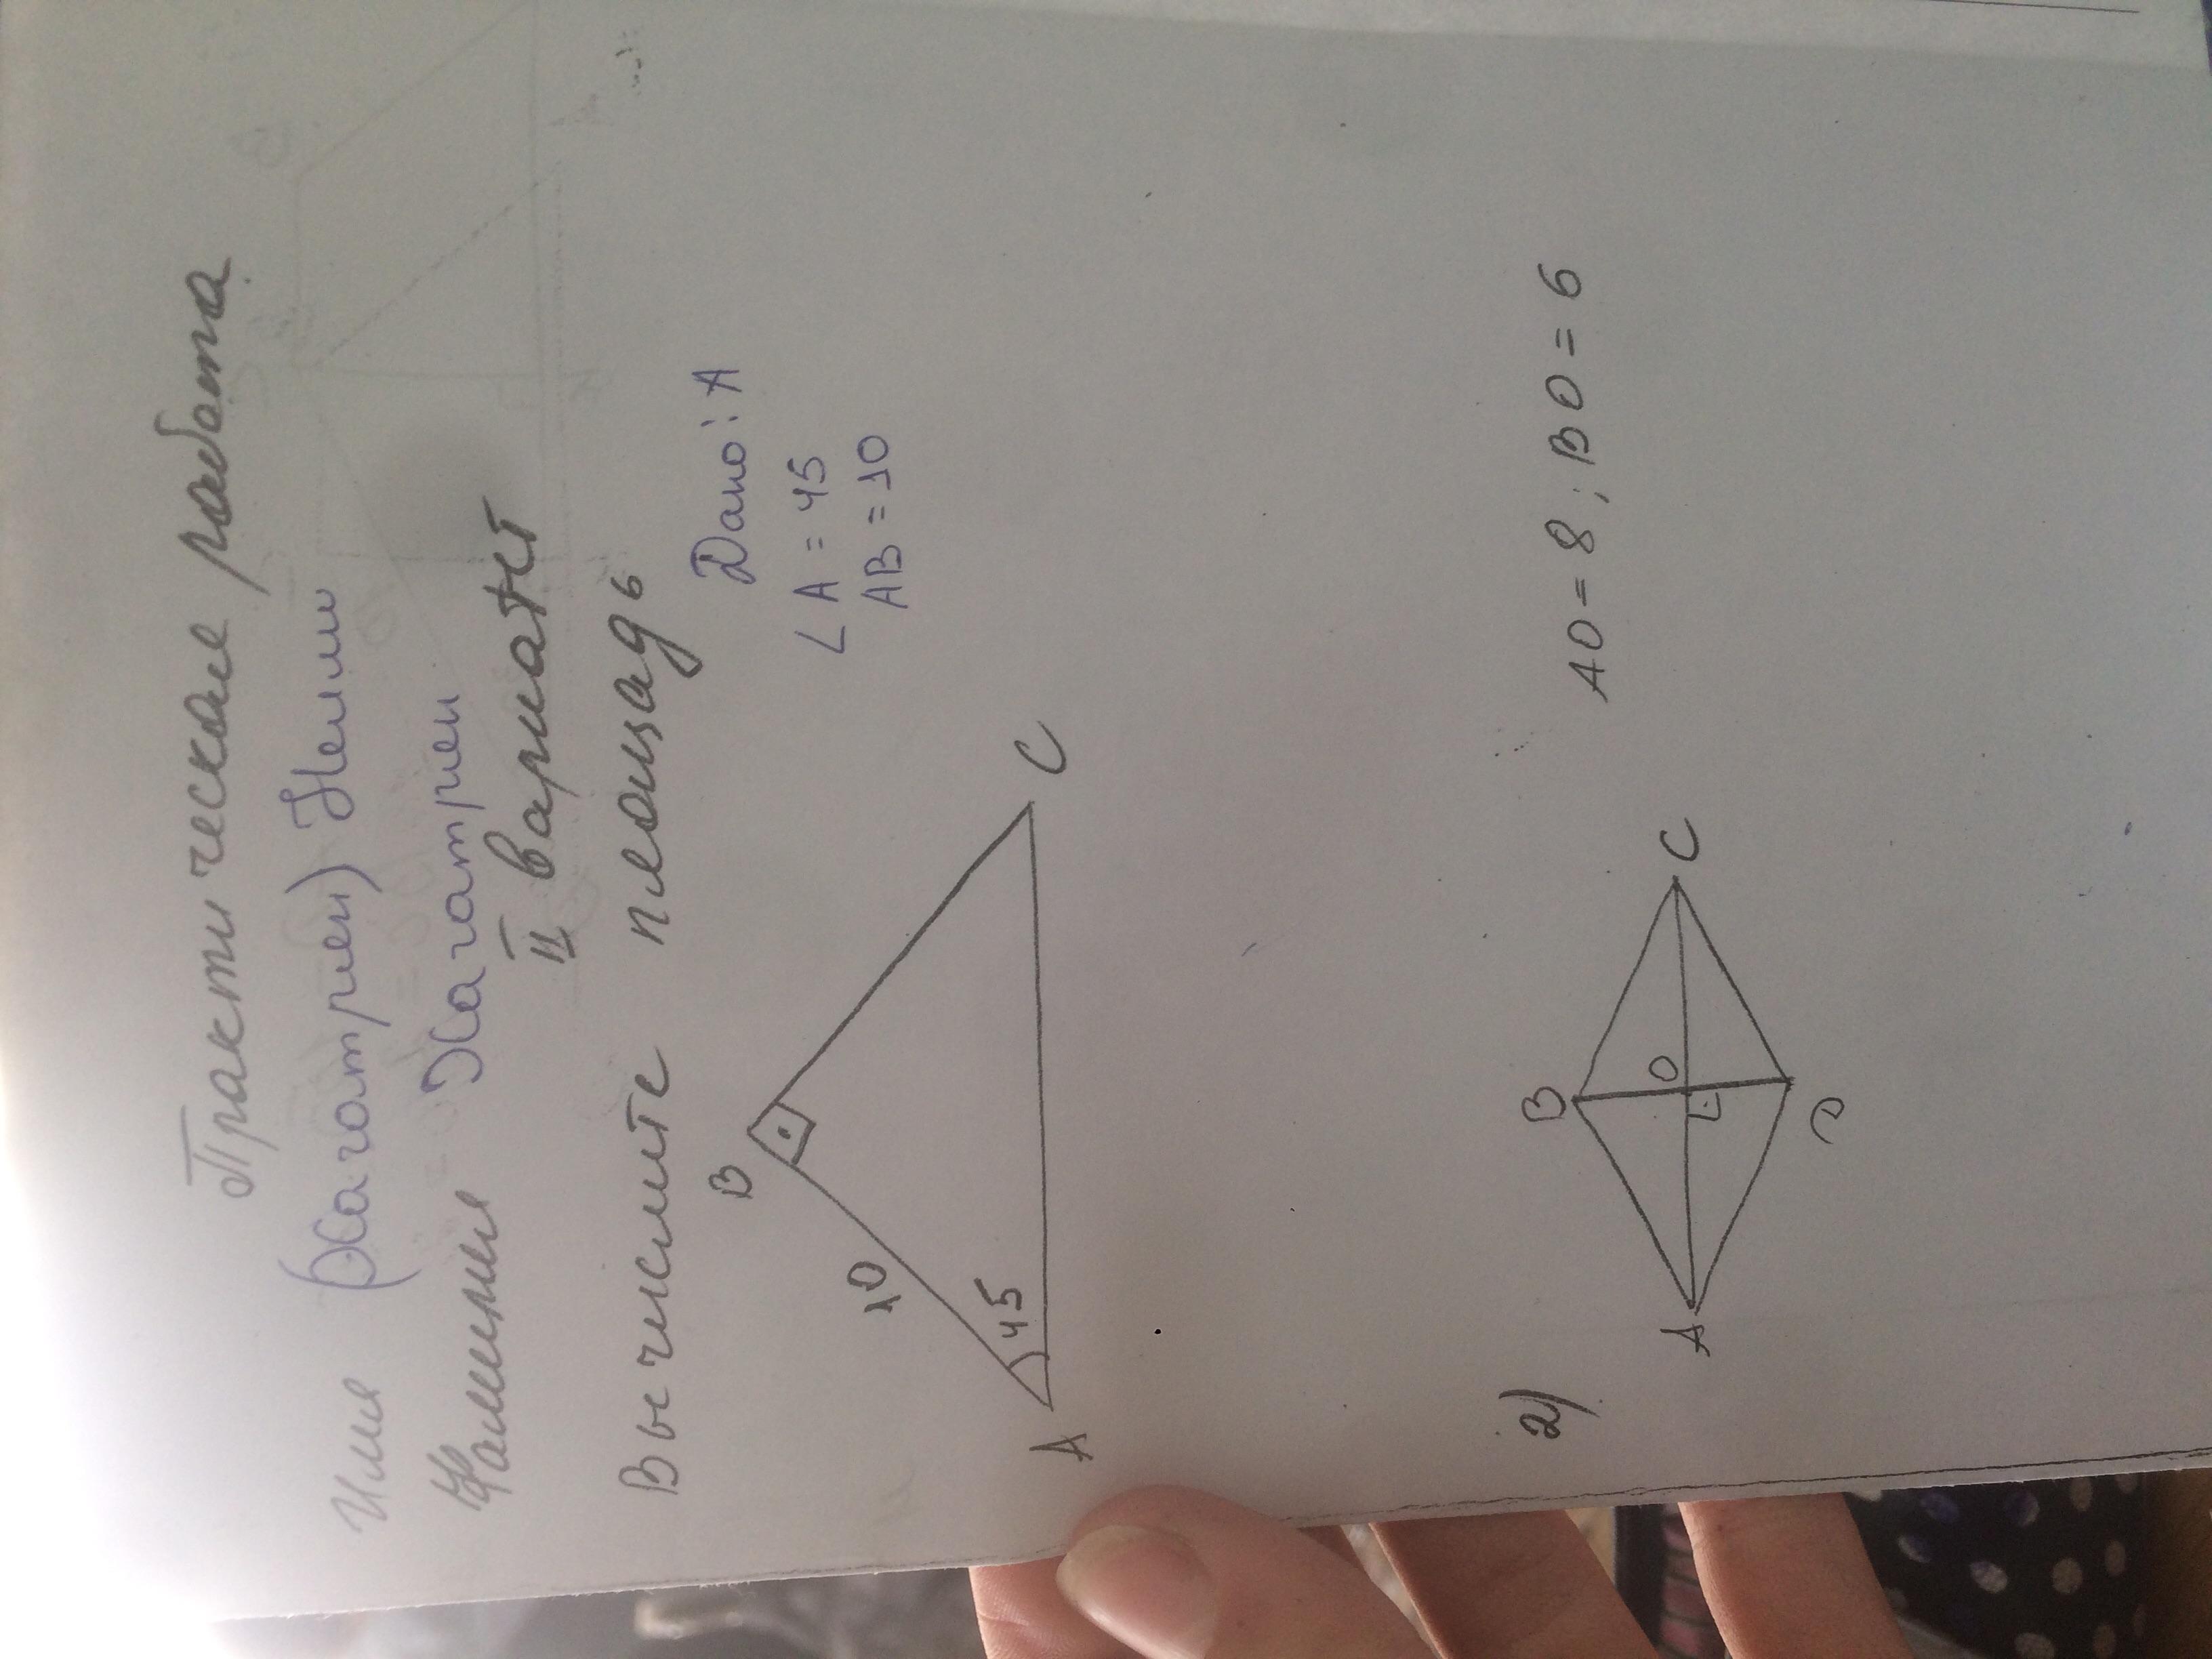 Практическая работа
Имя (Хагатрян) Нелли
Фамилия Хагатрян
II вариант
Вычислите площадь
Дано: A
∠ A = 45
AB = 10
B
10
45
A
C
2)
B
O
A
C
D
AO = 8 ; BO = 6